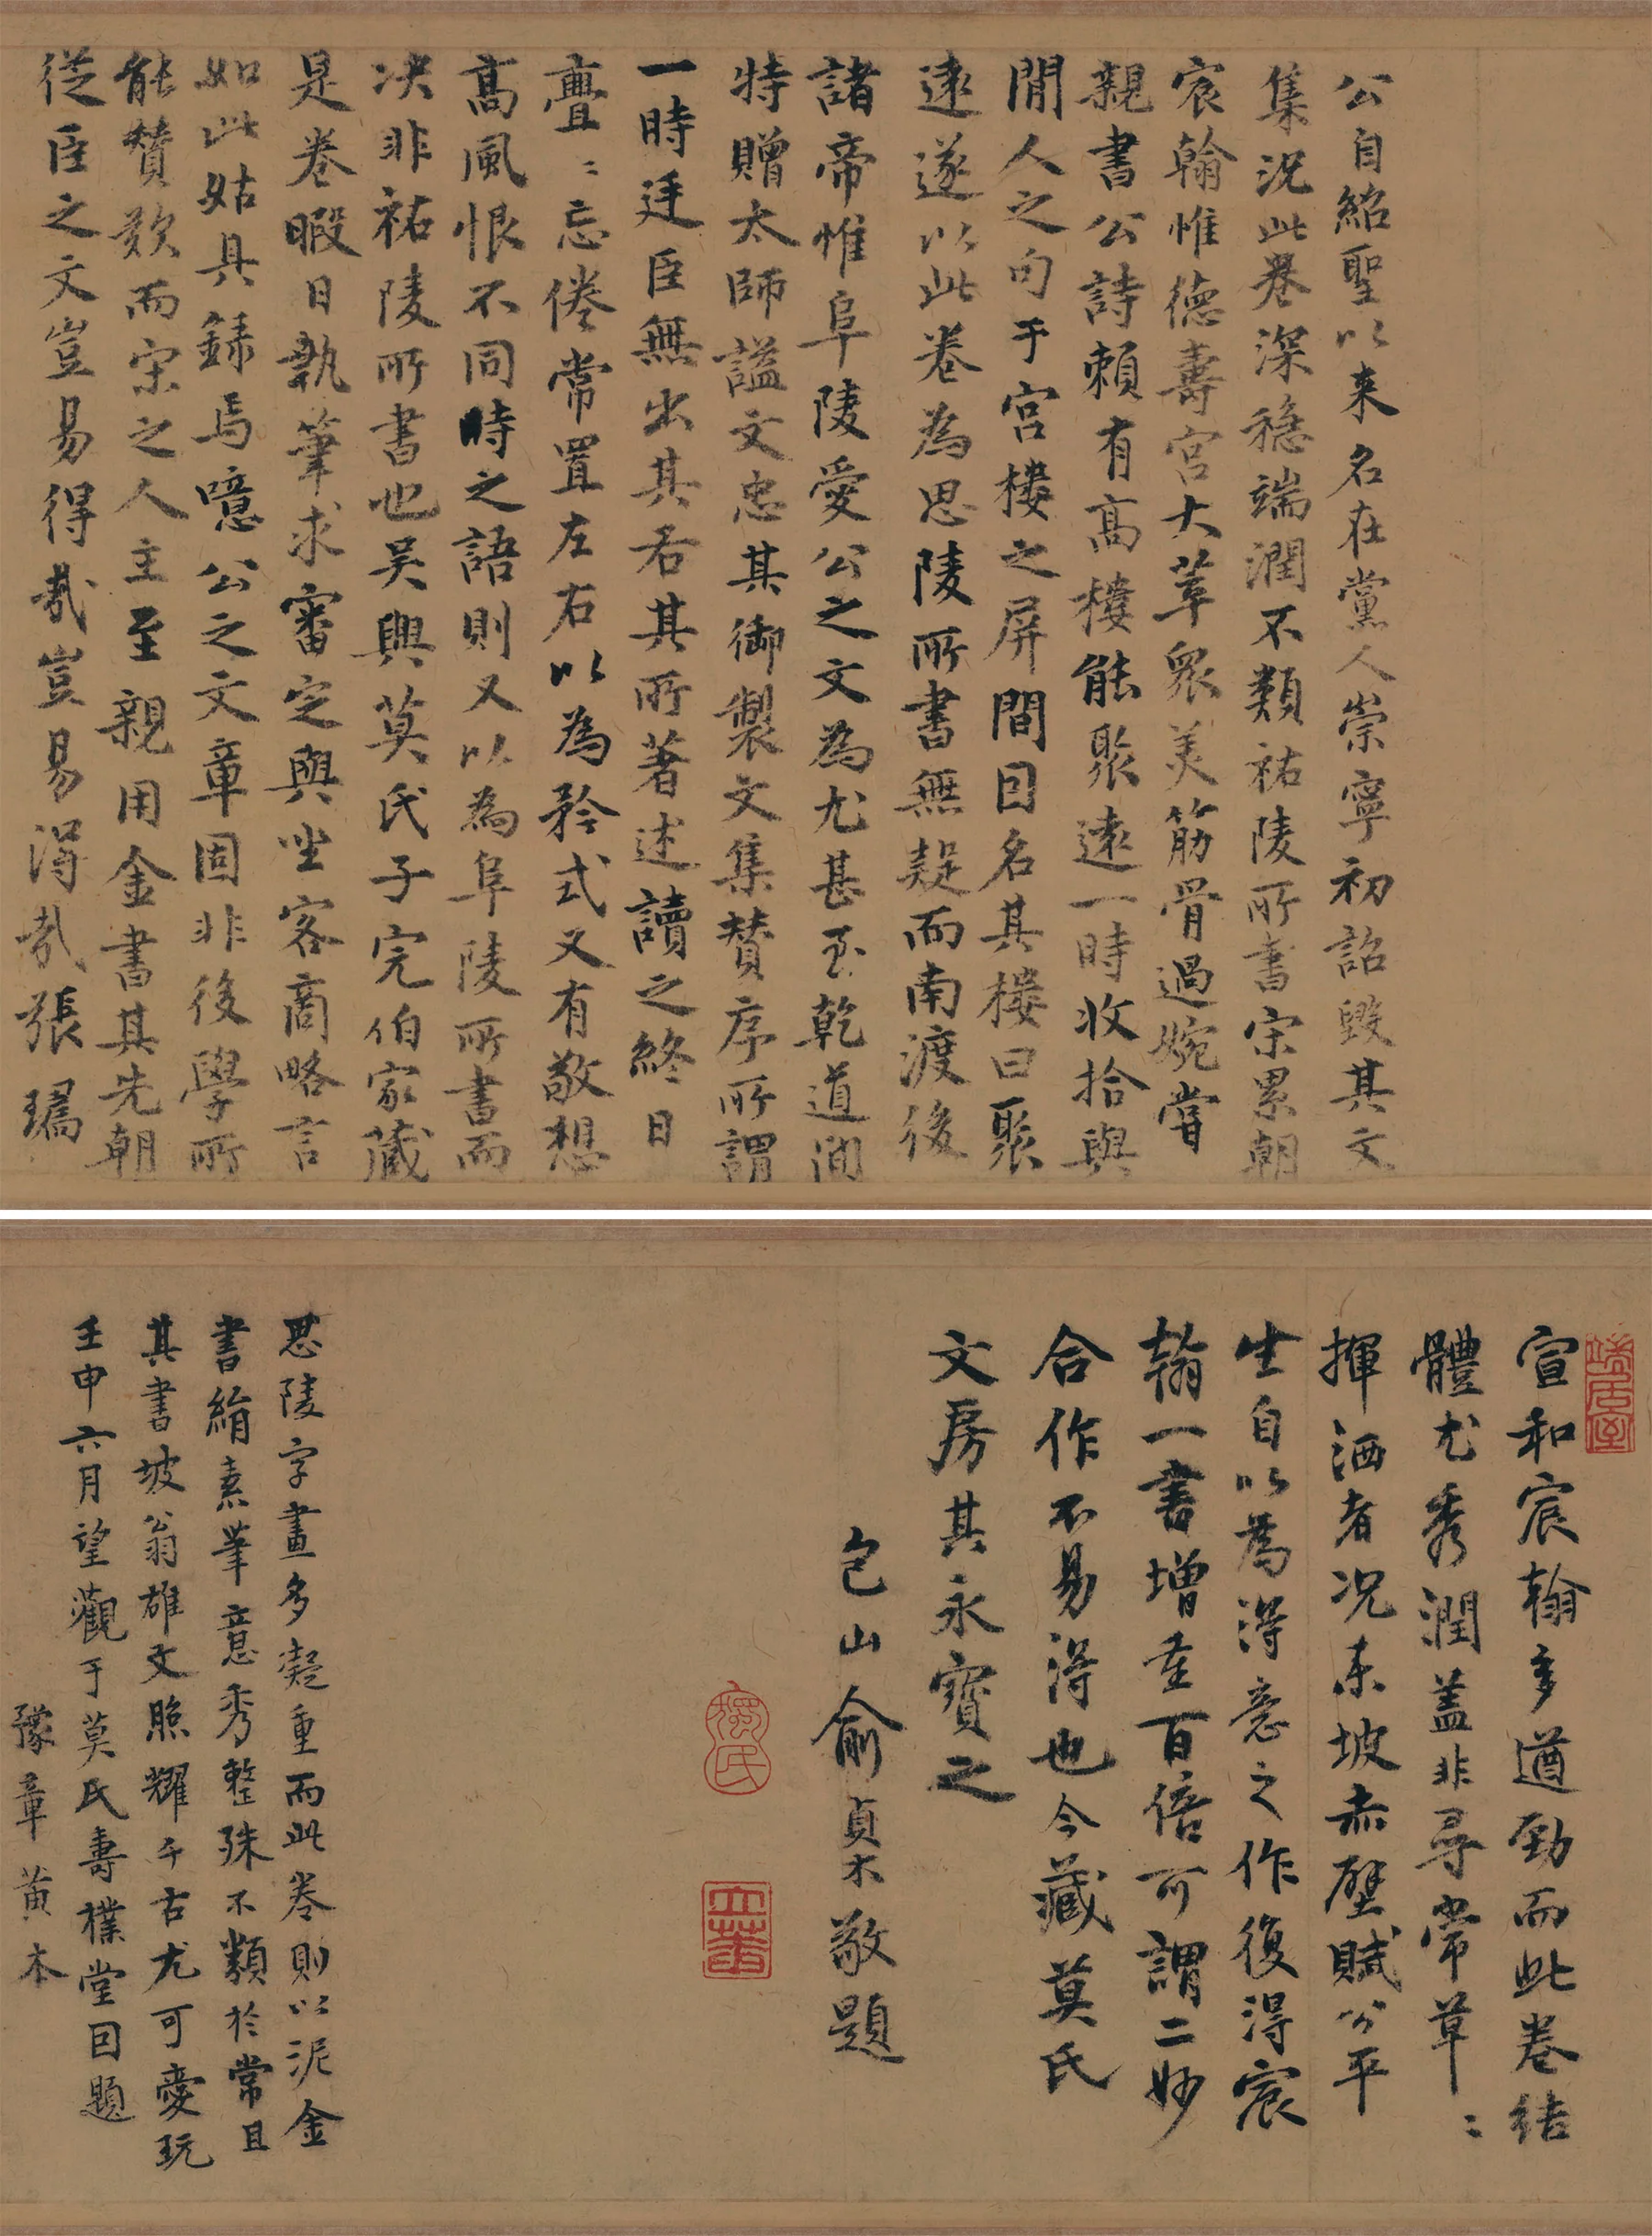 公自紹聖以来名在黨人崇寧初詔毀其文
集況此卷深穏端潤不類祐陵所書宋累朝
宸翰惟德壽宮大草衆美筋骨過婉嘗
親書公詩賴有高樓能聚遠一時收拾與
閒人之句于宮樓之屏間因名其樓曰聚
遠遂以此卷為思陵所書無疑而南渡後
諸帝惟阜陵愛公之文為尤甚至乾道間
特贈太師謚文忠其御製文集贊序所謂
一時廷臣無出其右其所著述讀之終日
亹〻忘倦常置左右以為矜式又有敬想
高風恨不同時之語則又以為阜陵所書而
决非祐陵所書也吴興莫氏子完伯家藏
是卷暇日執筆求審定與坐客商略言
如此姑具録焉噫公之文章固非後學所
能贊歎而宋之人主至親用金書其先朝
從臣之文豈易得哉豈易得哉張璚
端居室
宣和宸翰多遒勁而此卷結
體尤秀潤盖非尋常草〻
揮洒者况東坡赤壁賦公平
生自以為得意之作復得宸
翰一書增重百倍可謂二妙
合作不易得也今藏莫氏
文房其永寶之
包山俞貞木敬題
思陵字畫多凝重而此卷則以泥金
書絹素筆意秀整殊不類於常且
其書坡翁雄文照耀千古尤可愛玩
壬申六月望觀于莫氏壽樸堂因題
豫章黄本